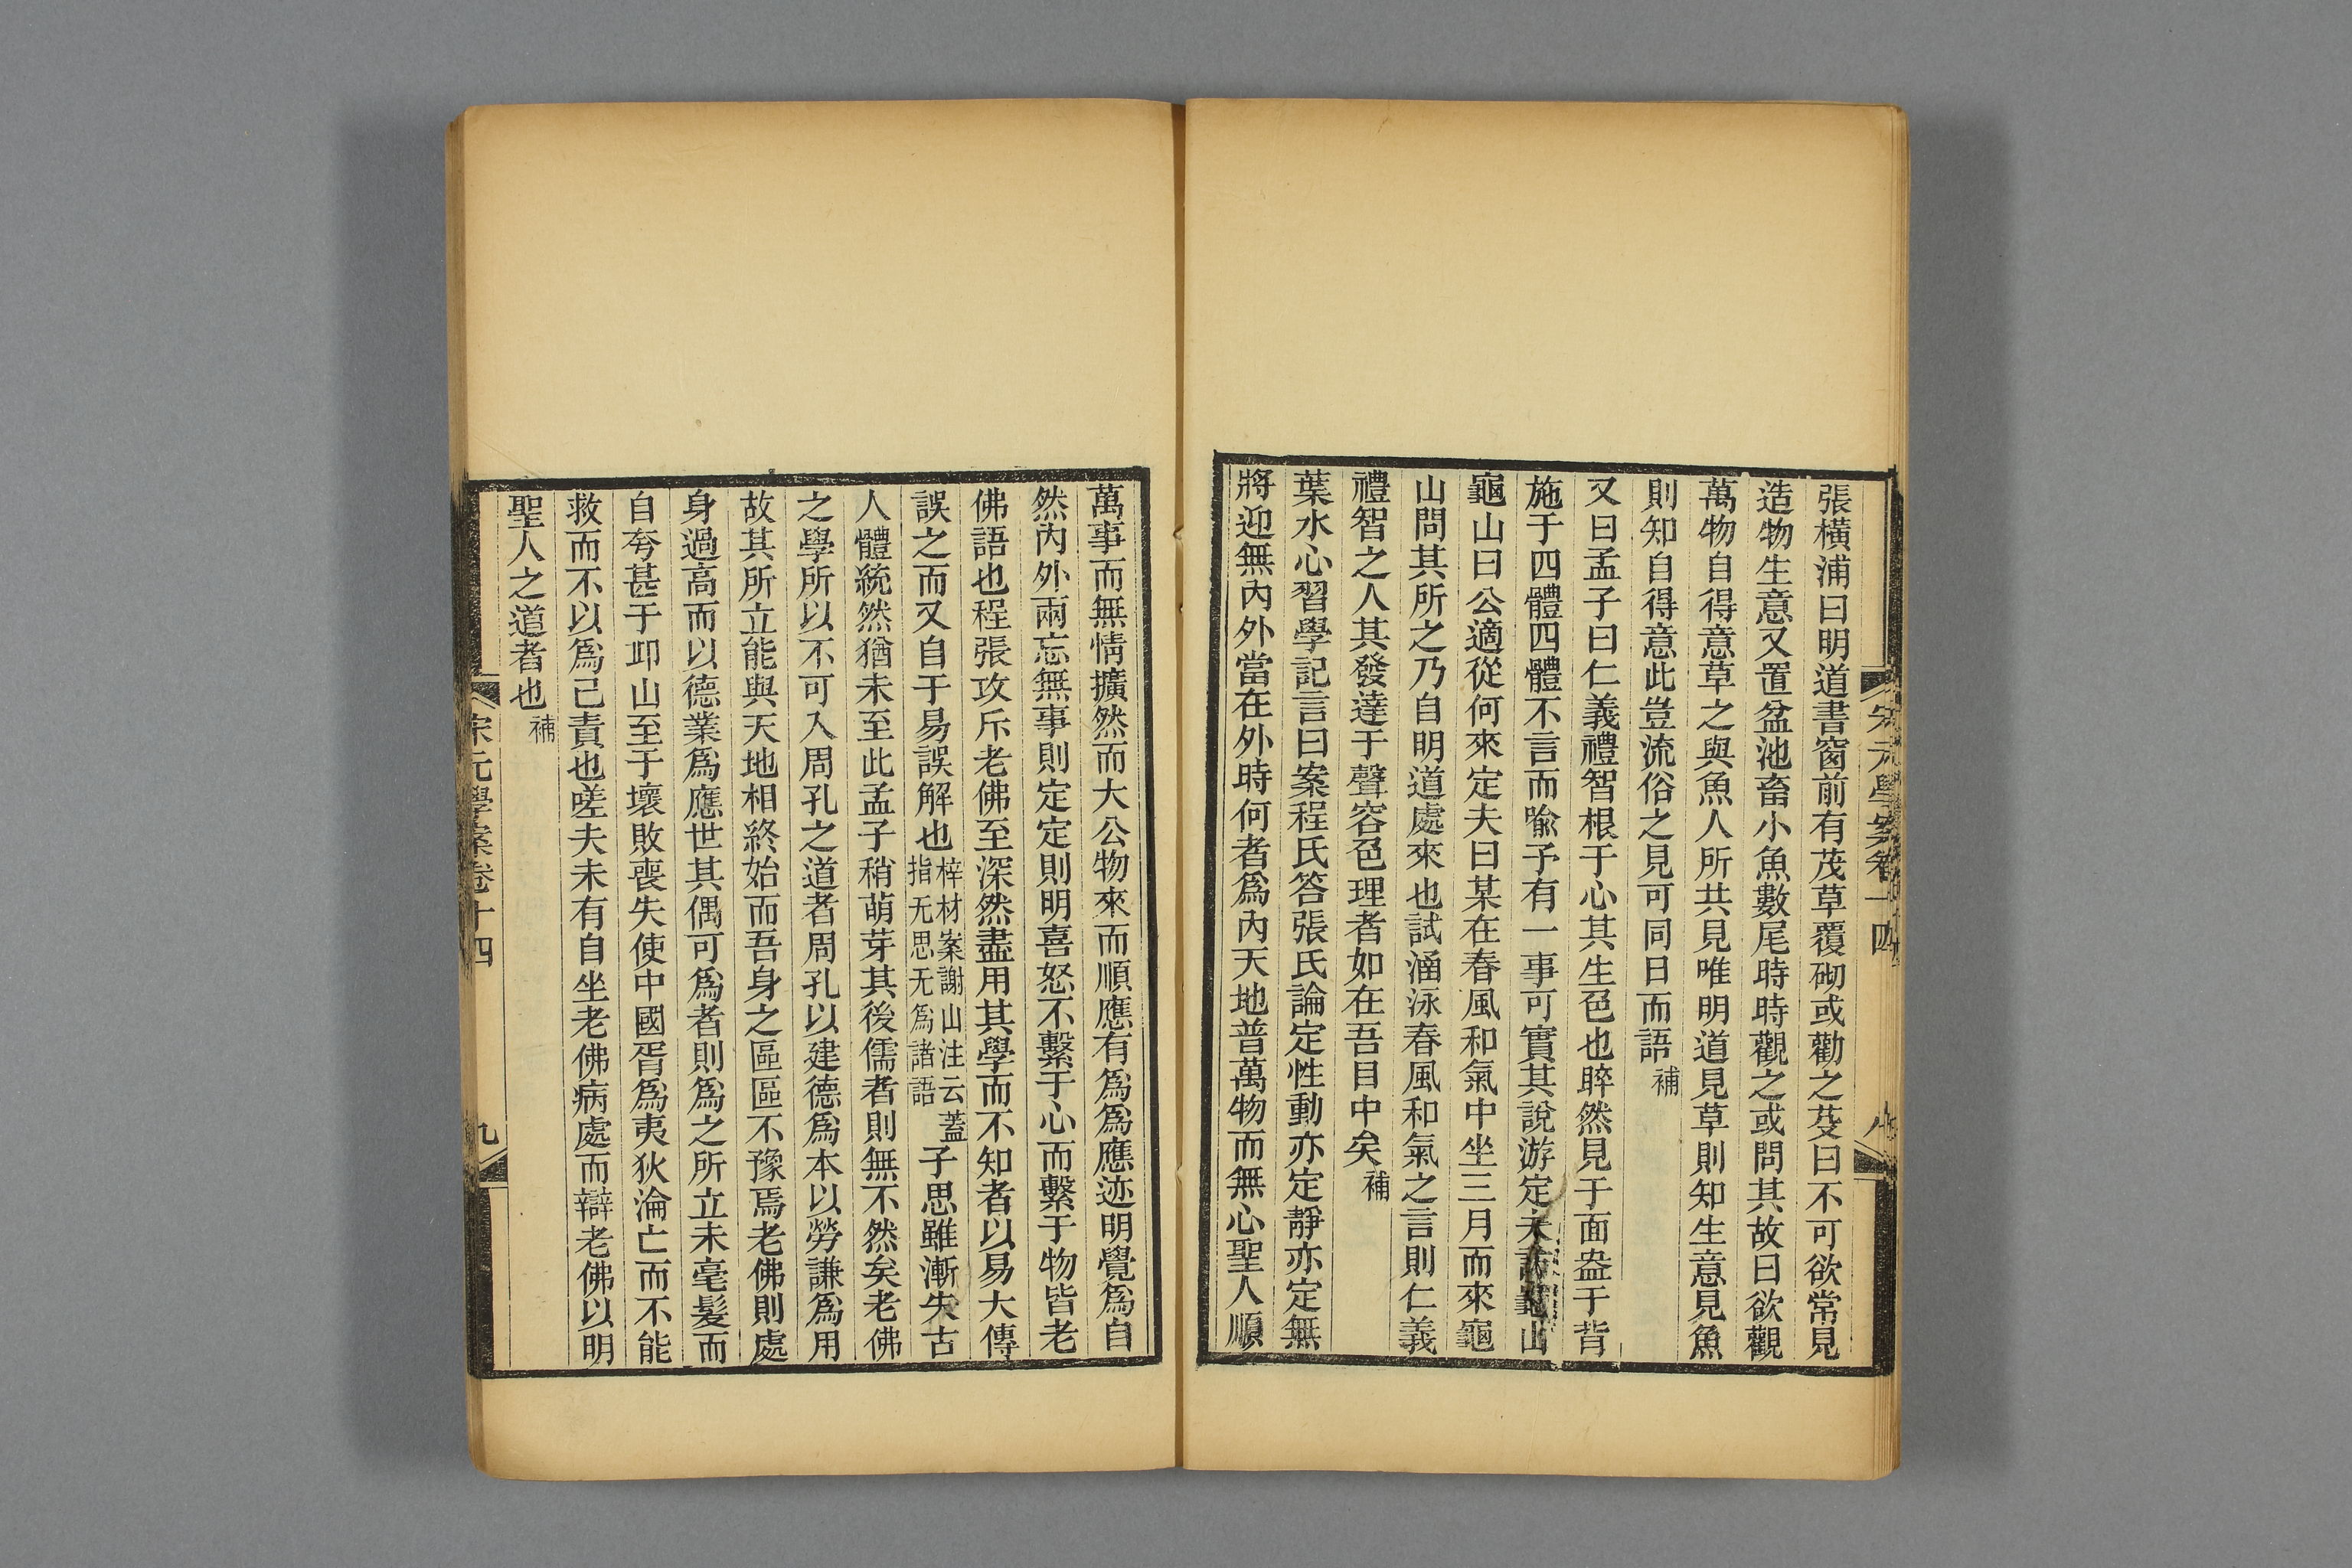 張橫浦曰明道書窗前有茂草覆砌或勸之芟曰不可欲常見
造物生意又置盆池畜小魚數尾時時觀之或問其故曰欲觀
萬物自得意草之與魚人所共見唯明道見草則知生意見魚
則知自得意此豈流俗之見可同日而語補
又曰孟子曰仁義禮智根于心其生色也睟然見于面盎于背
施于四體四體不言而喻予有一事可實其說游定夫訪龜山
龜山曰公適從何來定夫曰某在春風和氣中坐三月而來龜
山問其所之乃自明道處來也試涵泳春風和氣之言則仁義
禮智之人其發達于聲容色理者如在吾目中矣補
葉水心習學記言曰案程氏答張氏論定性動亦定靜亦定無
將迎無內外當在外時何者爲內天地普萬物而無心聖人順
宋元學案卷十四
八
萬事而無情擴然而大公物來而順應有爲爲應迹明覺爲自
然內外兩忘無事則定定則明喜怒不繫于心而繫于物皆老
佛語也程張攻斥老佛至深然盡用其學而不知者以易大傳
誤之而又自于易誤解也梓材案謝山注云蓋指无思无爲諸語子思雖漸失古
人體統然猶未至此孟子稍萌芽其後儒者則無不然矣老佛
之學所以不可入周孔之道者周孔以建德爲本以勞謙爲用
故其所立能與天地相終始而吾身之區區不豫焉老佛則處
身過高而以德業爲應世其偶可爲者則爲之所立未毫髮而
自夸甚于邱山至于壞敗喪失使中國胥爲夷狄淪亡而不能
救而不以爲己責也嗟夫未有自坐老佛病處而辯老佛以明
聖人之道者也補
宋元學案卷十四
九